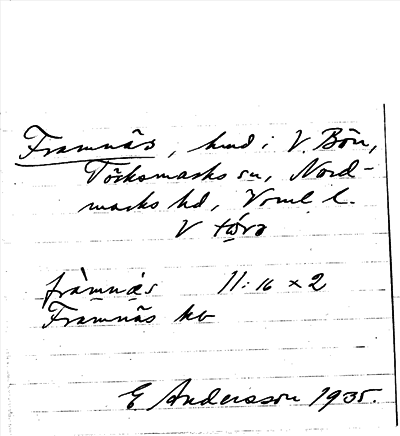 Framnäs, hmd i V. Bön,
Töcksmarks sn, Nord-
marks hd, Vrml l.
V
fràmnä̀s 11:16 × 2
Framnäs kv
E Andersson 1935.